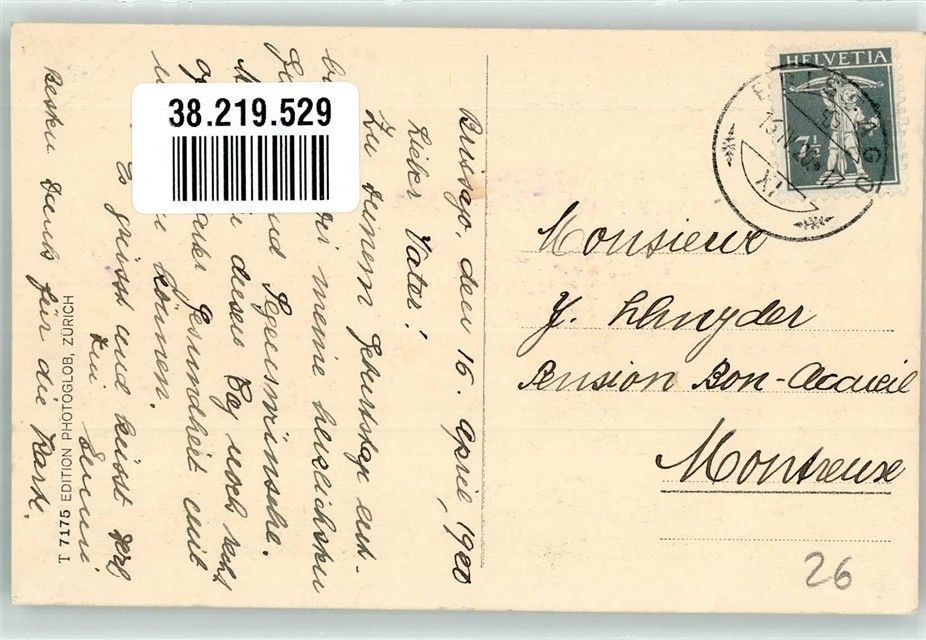 Brissago, den 16. April, 1920
Lieber Vater!
Zu Deinem Geburtstage ent-
meine herzlichsten
und Segenswünsche.
diesen Tag noch recht
Gesundheit mit
können.
Es grüsst und küsst Dich
Dein
Besten Dank für die Karte.
T 7175 EDITION PHOTOGLOB, ZÜRICH
38.219.529
HELVETIA
7½
BRISSAGO
XI
Monsieur
J. Schnyder
Pension Bon-Accueil
Montreux
26